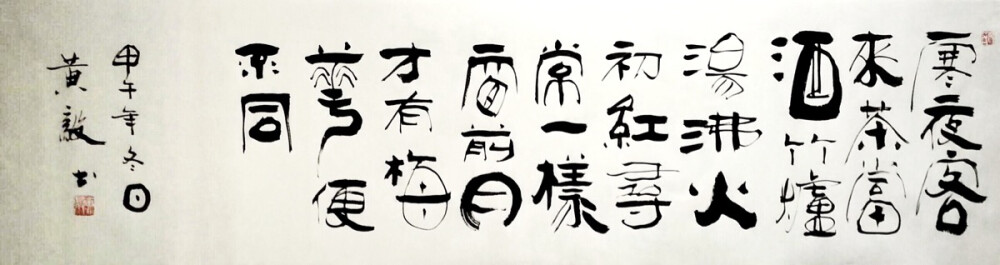 寒夜客
來茶當
酒竹爐
湯沸火
初紅尋
常一樣
窗前月
才有梅
華便
不同
甲午年冬日
黃毅書